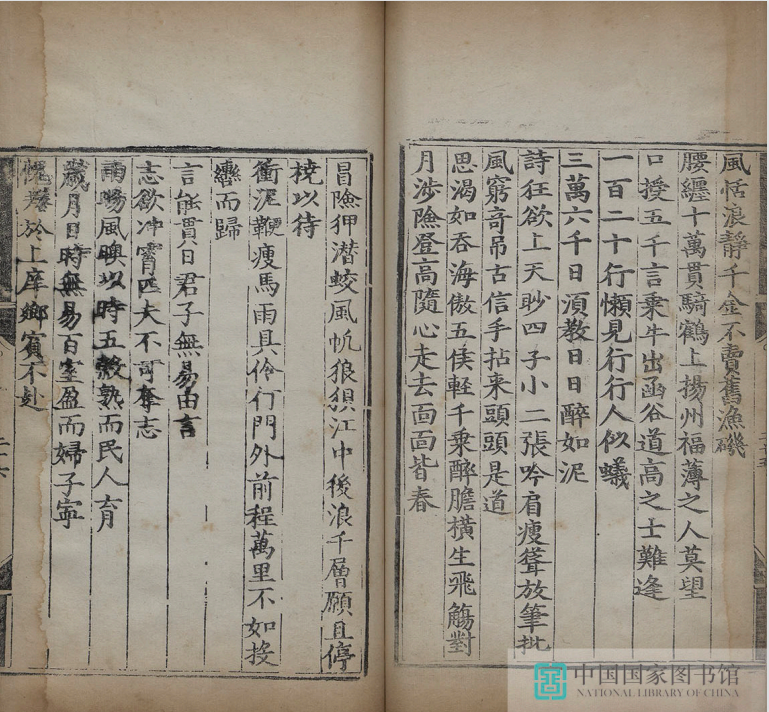 風恬浪靜千金不賣舊漁磯
腰纏十萬貫騎鶴上揚州福薄之人莫望
口授五千言乗牛出函谷道高之士難逢
一百二十行懶見行行人似蟻
三萬六千日湏教日日醉如泥
詩狂欲上天眇四子小二張吟肩瘦聳放筆批
風窮竒吊古信手拈来頭頭是道
思渴如吞海傲五侯軽千乗醉膽横生飛觴對
月涉險登高隨心走去面面皆春
冒險狎潜蛟風帆狼狽江中後浪千層願且停
橈以待
衝泥鞭瘦馬雨具伶仃門外前程萬里不如投
轡而歸
言能貫日君子無易由言
志欲冲霄匹夫不可奪志
雨暘風暖以時五穀熟而民人育
歳月日時無易百室盈而婦子寧
於上庠鄉賓不赴
二十五
二十六
中国国家图书馆
NATIONAL LIBRARY OF CHINA